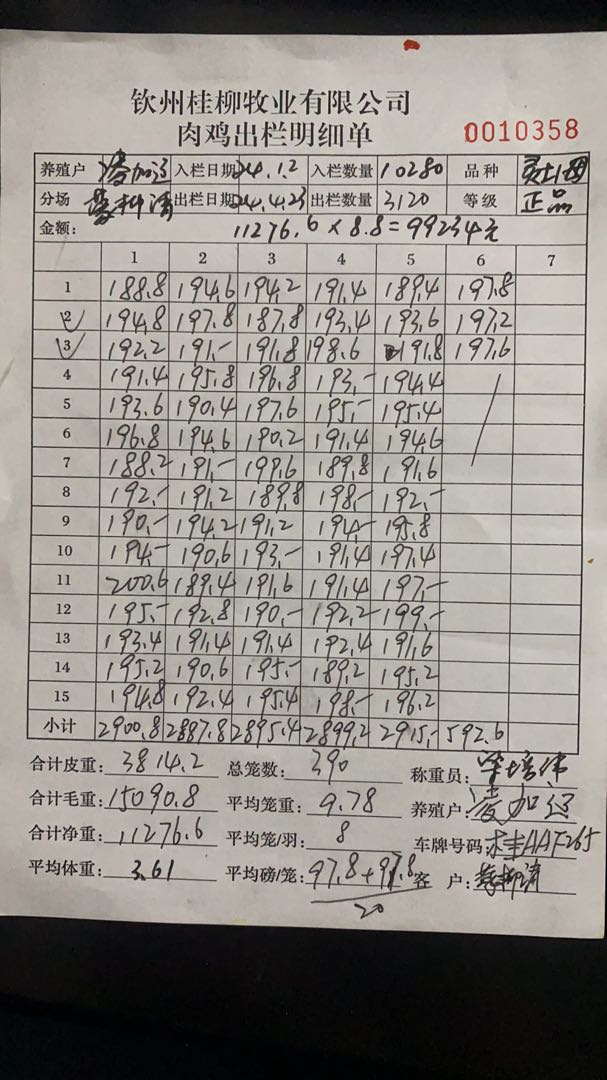 钦州桂柳牧业有限公司
肉鸡出栏明细单
0010358
养殖户 凌加运 入栏日期 24.1.2 入栏数量 10280 品种
分场 出栏日期 24.4.23 出栏数量 3120 等级 正品
金额: 11276.6×8.8=99234元
1 2 3 4 5 6 7
1 188.8 194.6 194.2 191.4 189.4 197.8
2 194.8 197.8 187.8 193.4 193.6 197.2
3 192.2 191.- 191.8 198.6 191.8 197.6
4 191.4 195.8 196.8 193.- 194.4
5 193.6 190.4 197.6 195.- 195.4
6 196.8 194.6 190.2 191.4 194.6
7 188.2 191.- 199.6 189.8 191.6
8 192.- 191.2 189.8 198.- 192.-
9 190.- 194.2 191.2 194.- 195.8
10 194.- 190.6 193.- 191.4 197.4
11 200.6 189.4 191.6 191.4 197.-
12 195.- 192.8 190.- 192.2 199.-
13 193.4 191.4 191.4 192.4 191.6
14 195.2 190.6 195.- 189.2 195.2
15 194.8 192.4 195.4 198.- 196.2
小计 2900.8 2887.8 2895.4 2899.2 2915.- 592.6
合计皮重: 3814.2 总笼数: 390 称重员:
合计毛重: 15090.8 平均笼重: 9.78 养殖户: 凌加运
合计净重: 11276.6 平均笼/羽: 8 车牌号码: 桂AAF265
平均体重: 3.61 平均磅/笼: 97.8+97.8 客 户:
20